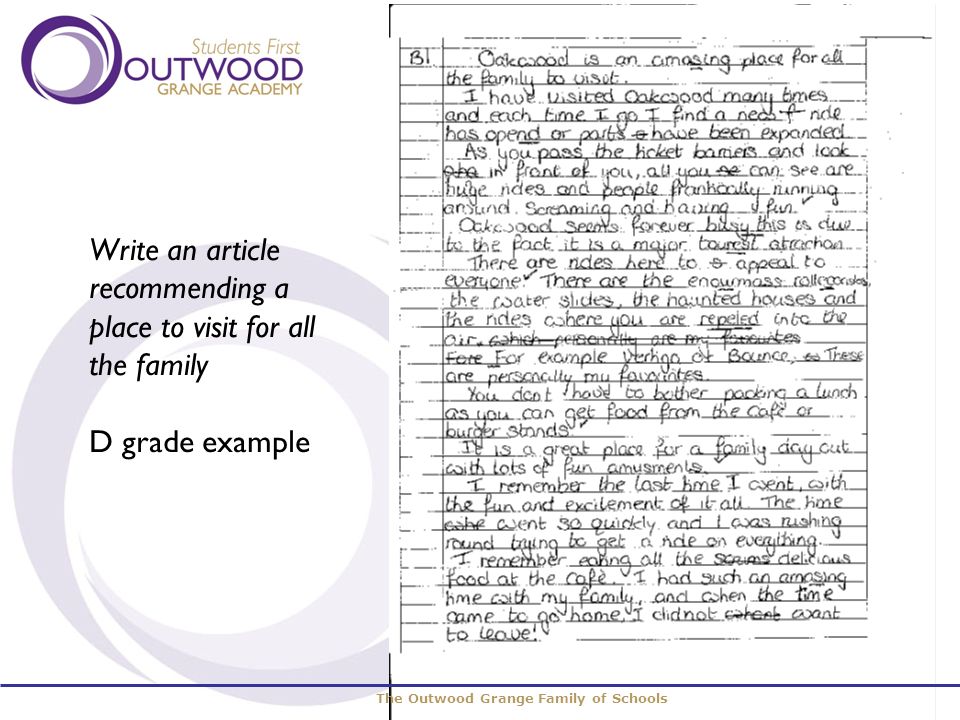 Students First
OUTWOOD
GRANGE ACADEMY
Write an article
recommending a
place to visit for all
the family
D grade example
B1 Oakwood is an amasing place for all
the family to visit.
I have visited Oakwood many times
and each time I go I find a new ride
has opend or parts have been expanded
As you pass the ticket barriers and look
in front of you, all you can see are
huge rides and people frantically running
around. Screaming and having fun.
Oakwood seems forever busy this is due
to the fact it is a major tourest atraction.
There are rides here to appeal to
everyone. There are the enourmass
the water slides, the haunted houses and
the rides where you are repeled into the
air. which personally are my favourites
Fore For example Vertigo or Bounce, These
are personally my favorites.
You dont have to bother packing a lunch
as you can get food from the café or
burger stands
It is a great place for a family day out
with lots of fun amusments.
I remember the last time I went, with
the fun and excitement of it all. The time
went so quickly and I was rushing
round trying to get a ride on everything.
I remember eating all the delicious
food at the café. I had such an amasing
time with my family, and when the time
came to go home, I did not want
to leave!
The Outwood Grange Family of Schools